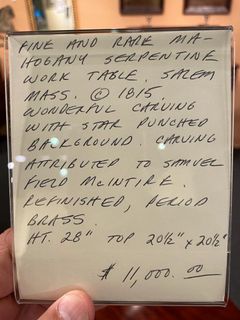 FINE AND RARE MA-
HOGANY SERPENTINE
WORK TABLE. SALEM
MASS. @ 1815.
WONDERFUL CARVING
WITH STAR PUNCHED
BACKGROUND. CARVING
ATTRIBUTED TO SAMUEL
FIELD McINTIRE.
REFINISHED, PERIOD
BRASS.
HT. 28" TOP 20½" x 20½"
$ 11,000.00